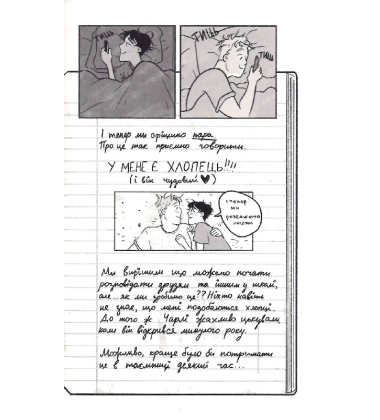 ТИЦЬ
ТИЦЬ
ТИЦЬ
І тепер ми офіційно пара.
Про це так приємно говорити.
У МЕНЕ Є ХЛОПЕЦЬ!!!!
(і він чудовий ♥)
і тепер
ми
Ми вирішили що можемо почати
розповідати друзям та іншим у школі,
але... як ми зробимо це?? Ніхто навіть
не знає, що мені подобаються хлопці.
До того ж Чарлі жахливо цькували,
коли він відкрився минулого року.
Можливо, краще було би потримати
це в таємниці деякий час...